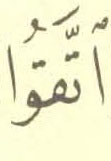 ٱتَّقُوا